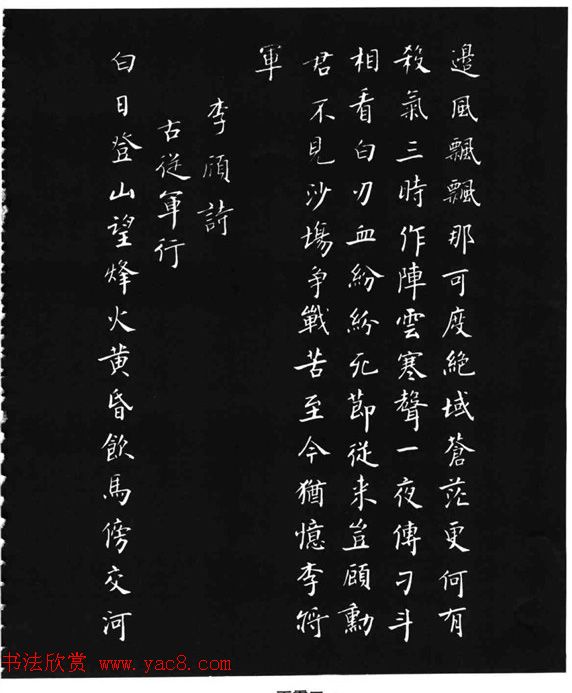 邉風飄飄那可度絕域蒼茫更何有
殺氣三時作陣雲寒聲一夜傳刁斗
相看白刃血紛紛死節從来豈顧勳
君不見沙塲争戰苦至今猶憶李將
軍
李頎詩
古從軍行
白日登山望烽火黄昏飲馬傍交河
书法欣赏 www.yac8.com